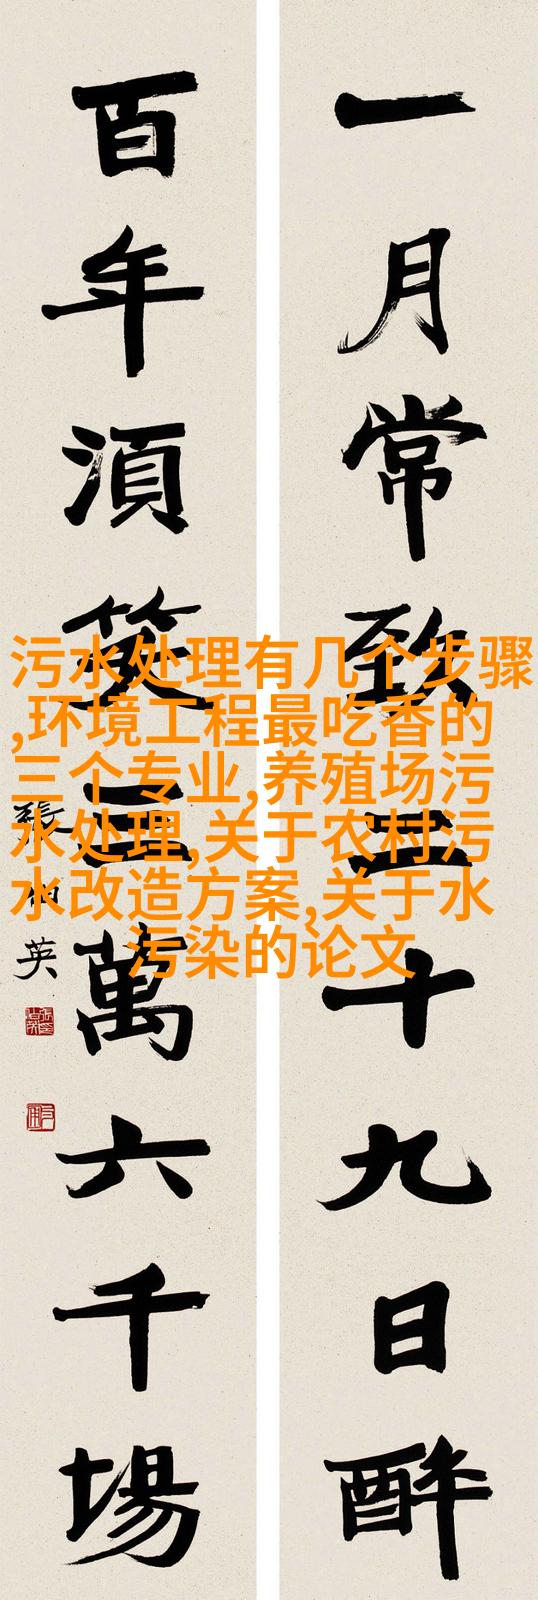 一月常致二十九日醉
百年湏笑三萬六千場
張伯英
污水处理有几个步骤
,环境工程最吃香的
三个专业,养殖场污
水处理,关于农村污
水改造方案,关于水
污染的论文